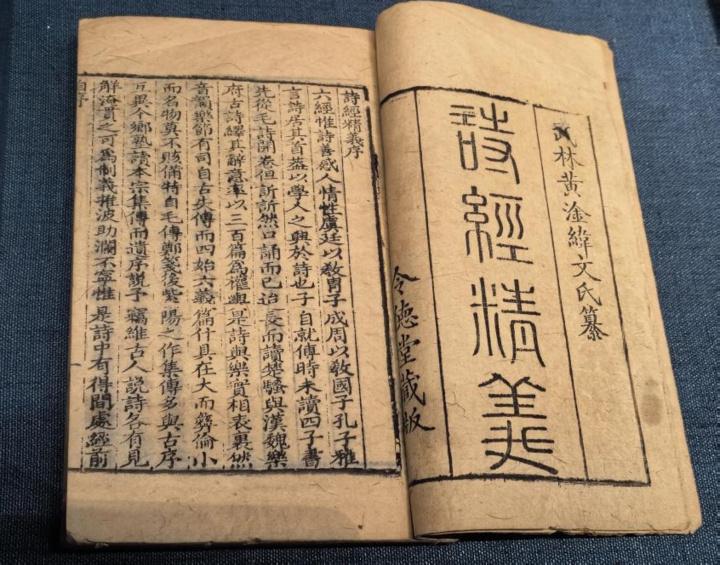 武林黃淦緯文氏纂
詩經精義
令德堂藏版
詩經精義序
六經惟詩善感人情性虞廷以敎胄子成周以敎國子孔子雅
言詩居其首葢以學人之興於詩也子自就傅時未讀四子書
先從毛詩開卷但訢訢然口誦而已迨長而讀楚騷與漢魏樂
府古詩繹其辭意率以三百篇爲權輿是詩與樂實相表裏然
音韻樂節有司自古失傳而四始六義篇什具在大而彞倫小
而名物莫不賅備特自毛傳鄭箋後紫陽之作集傳多與古序
互異今鄉塾讀本宗集傳而遺序說予竊維古人說詩各有見
解淹貫之可爲制義推波助瀾不寧惟是詩中有得間處經前